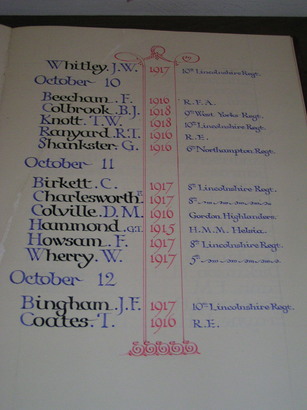 Whitley. J.W. 1917 10th Lincolnshire Regt.
October 10
Beecham. F. 1916 R.F.A.
Colbrook. B.J. 1918 9th West Yorks Regt.
Knott. T.W. 1918 10th Lincolnshire Regt.
Ranyard. R.T. 1916 R.E.
Shankster. G. 1916 6th Northampton Regt.
October 11
Birkett. C. 1917 8th Lincolnshire Regt.
Charlesworth. 1917 8th
Colville. D.M. 1916 Gordon Highlanders
Hammond. G.T. 1915 H.M.M. Helvia.
Howsam. F. 1917 8th Lincolnshire Regt.
Wherry. W. 1917 5th
October 12
Bingham. J.F. 1917 10th Lincolnshire Regt.
Coates. T. 1916 R.E.